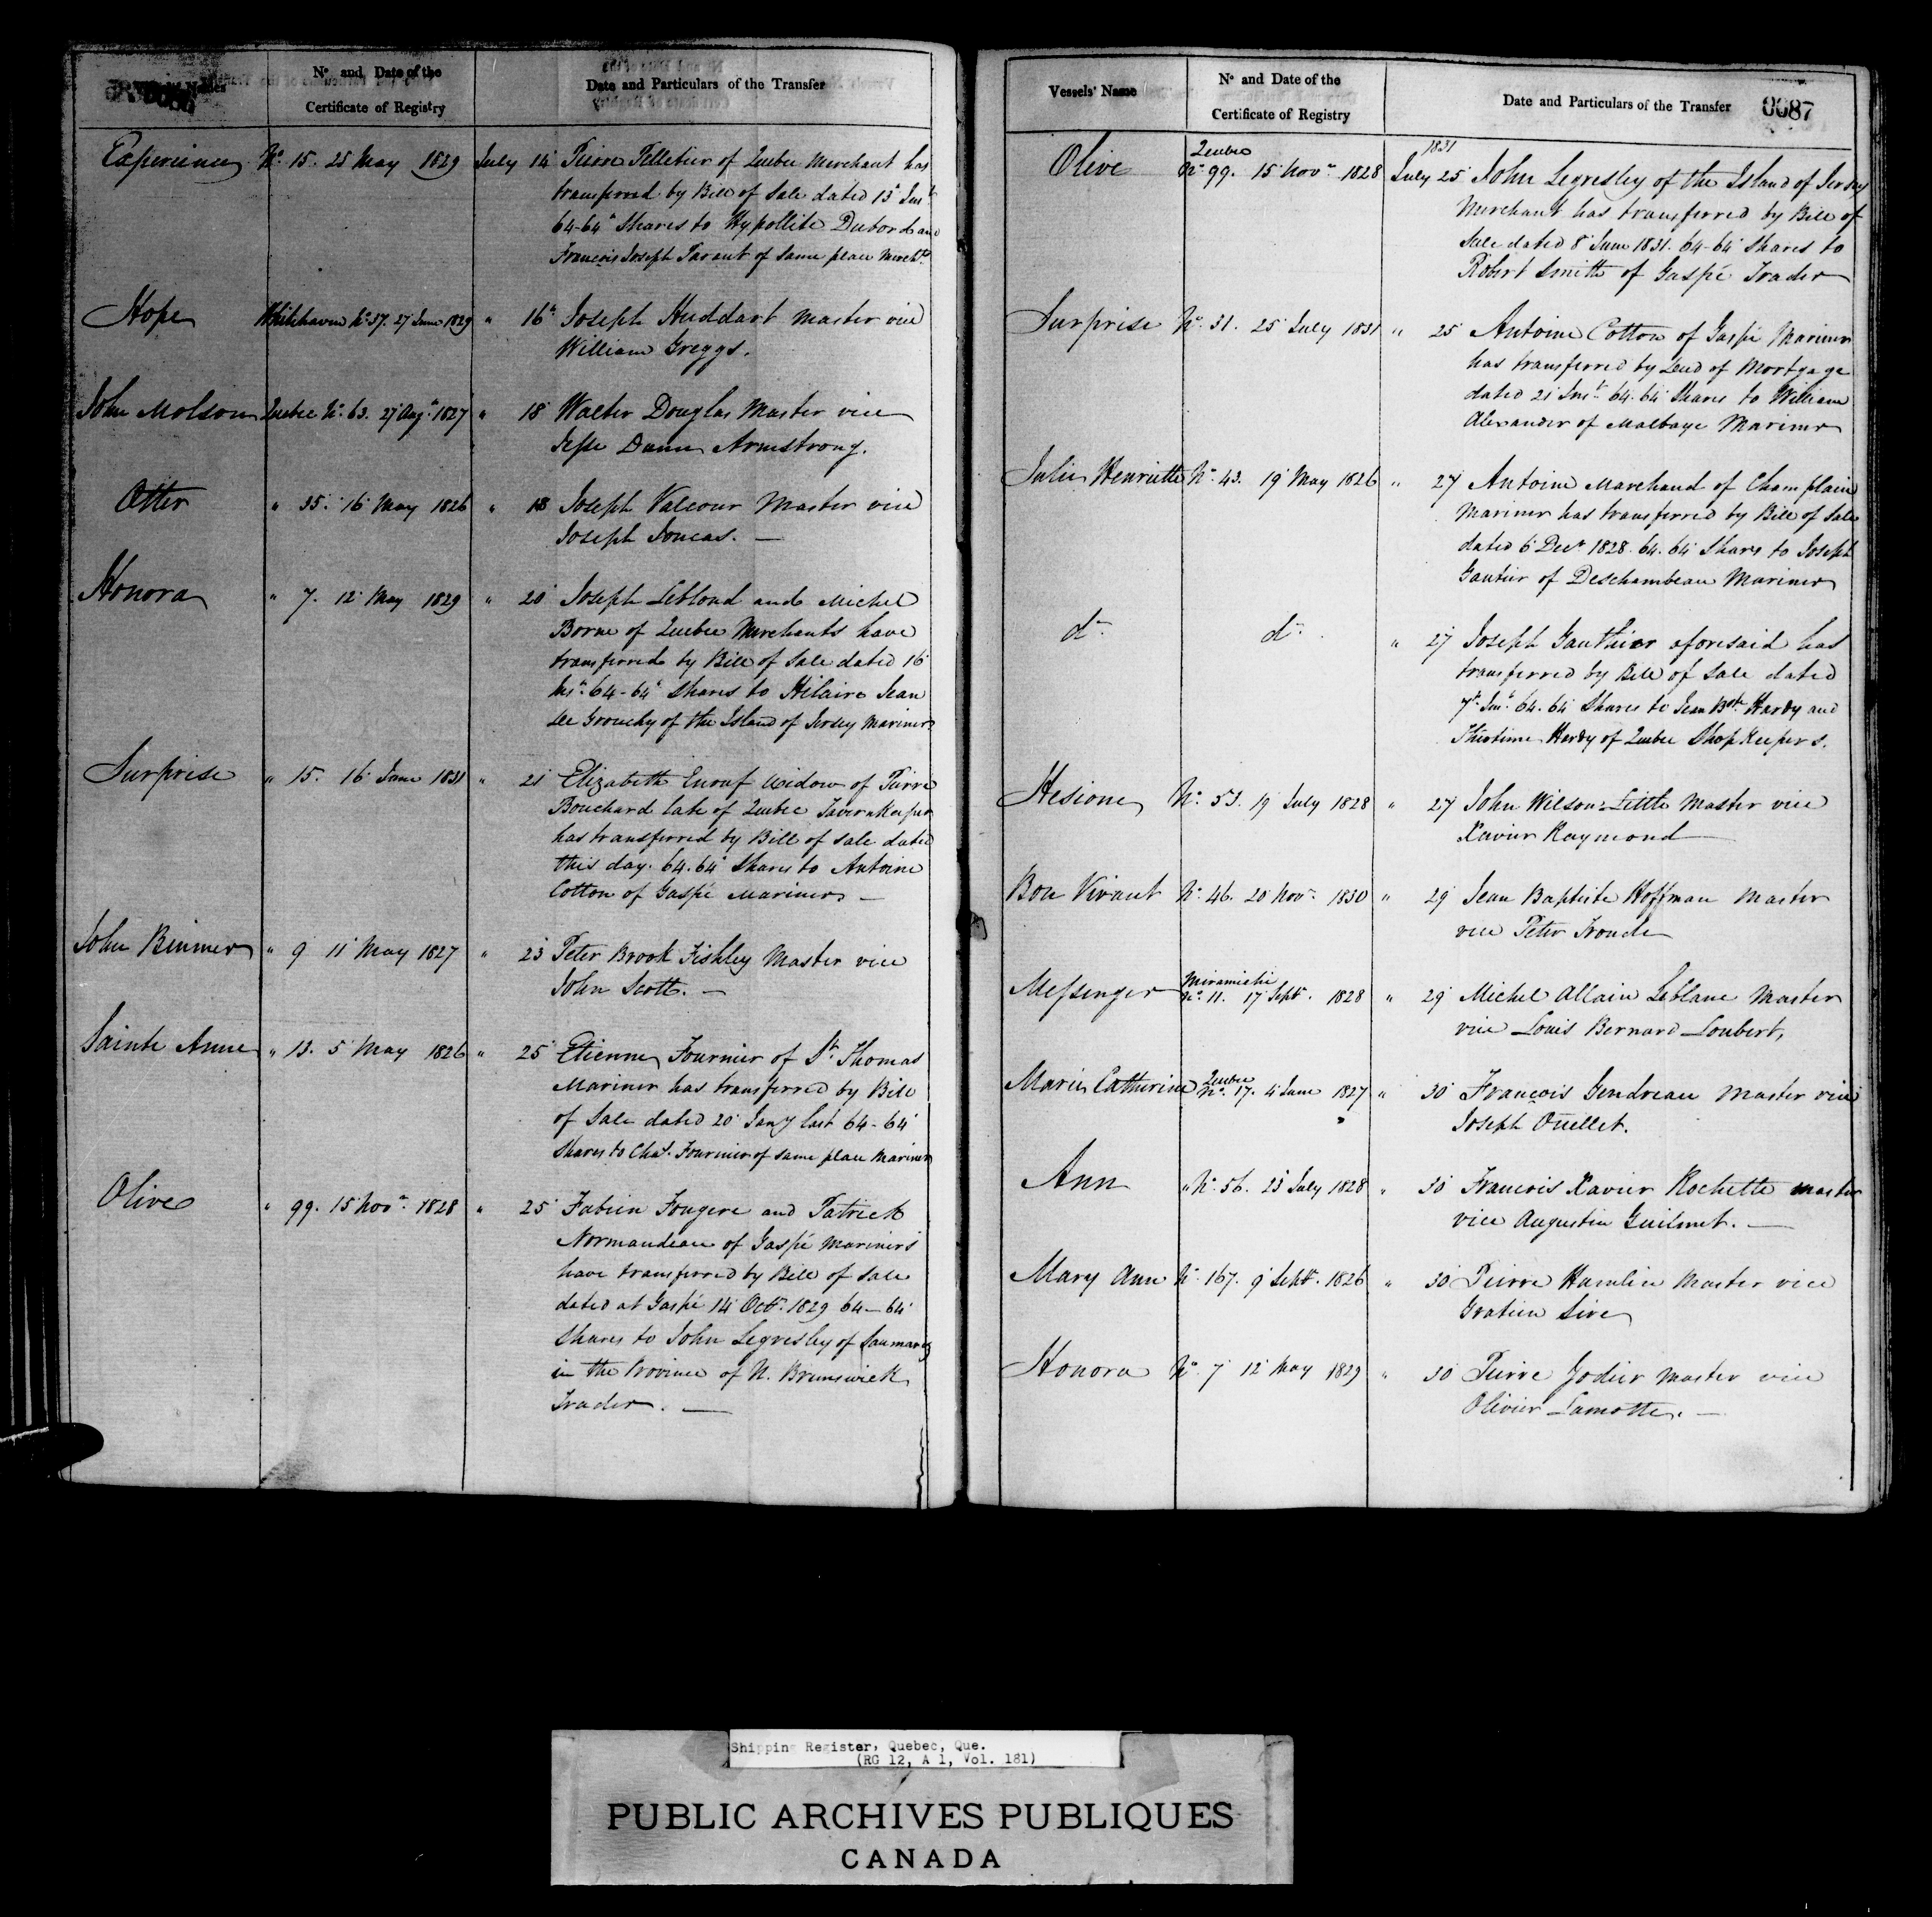 Nº and Date of the
Certificate of Registry
Date and Particulars of the Transfer
Experience Nº 15. 25 May 1829 July 14 Pierre Pelletier of Quebec Merchant has
transferred by Bill of Sale dated 13 Inst
64-64th Shares to Hypollite Dubord and
François Joseph Parant of same place Merchts
Hope Whitehaven Nº 37. 27 June 1829 " 16th Joseph Huddart Master vice
William Greggs.
John Molson Quebec Nº 63. 27 Augt 1827 " 18 Walter Douglas Master vice
Jesse Dunn Armstrong.
Otter " 35. 16 May 1826 " 18 Joseph Valcour Master vice
Joseph Joncas. —
Honora " 7. 12 May 1829 " 20 Joseph Leblond and Michel
Borne of Quebec Merchants have
transferred by Bill of Sale dated 16
Inst 64-64th Shares to Hilaire Jean
De Grouchy of the Island of Jersey Mariner
Surprise " 15. 16 June 1831 " 21 Elizabeth Enouf Widow of Pierre
Bouchard late of Quebec Tavern Keeper
has transferred by Bill of Sale dated
this day. 64.64th Shares to Antoine
Cotton of Gaspé Mariner —
John Binmer " 9 11 May 1827 " 23 Peter Brook Fishley Master vice
John Scott. —
Sainte Anne " 13. 5 May 1826 " 25 Etienne Fournier of St Thomas
Mariner has transferred by Bill
of Sale dated 20 Jany last 64-64
Shares to Chas. Fournier of same place Mariner
Olive " 99. 15 Novr 1828 " 25 Fabien Fougere and Patrick
Normandeau of Gaspé Mariners
have transferred by Bill of Sale
dated at Gaspé 14 Octr. 1829 64-64
Shares to John Legresley of Saumarez
in the Province of N. Brunswick
Trader. —
Vessels' Name
Nº and Date of the
Certificate of Registry
Date and Particulars of the Transfer 0087
Quebec 1831
Olive Nº 99. 15 Novr 1828 July 25 John Legresley of the Island of Jersey
Merchant has transferred by Bill of
Sale dated 8 June 1831. 64-64 Shares to
Robert Smith of Gaspé Trader
Surprise Nº 31. 25 July 1831 " 25 Antoine Cotton of Gaspé Mariner
has transferred by Deed of Mortgage
dated 21 Inst 64.64 Shares to William
Alexander of Malbaye Mariner
Julie Henriette Nº 43. 19 May 1826 " 27 Antoine Marchand of Champlain
Mariner has transferred by Bill of Sale
dated 6 Decr 1828. 64.64 Shares to Joseph
Gautier of Deschambeau Mariner
do do " 27 Joseph Gauthier aforesaid has
transferred by Bill of Sale dated
7th Inst 64.64 Shares to Jean Bte Hardy and
Thiotime Hardy of Quebec Shop Keepers.
Hesione Nº 53. 19 July 1828 " 27 John Wilson Little Master vice
Xavier Raymond
Bon Vivant Nº 46. 20 Novr 1830 " 29 Jean Baptiste Hoffman Master
vice Peter Tronde
Miramichi
Messenger Nº 11. 17 Septr. 1828 " 29 Michel Allain Leblanc Master
vice Louis Bernard Loubert,
Quebec
Marie Catherine Nº 17. 4 June 1827 " 30 François Gendreau Master vice
Joseph Ouellet.
Ann " Nº 56. 23 July 1828 " 30 Francois Xavier Rochette Master
vice Augustin Guilmet. —
Mary Ann Nº 167. 9 Septr. 1826 " 30 Pierre Hamlin Master vice
Gratien Sire
Honora Nº 7 12 May 1829 " 30 Pierre Godier Master vice
Olivier Lamotte. —
Shipping Register, Quebec, Que.
(RG 12, A 1, Vol. 181)
PUBLIC ARCHIVES PUBLIQUES
CANADA